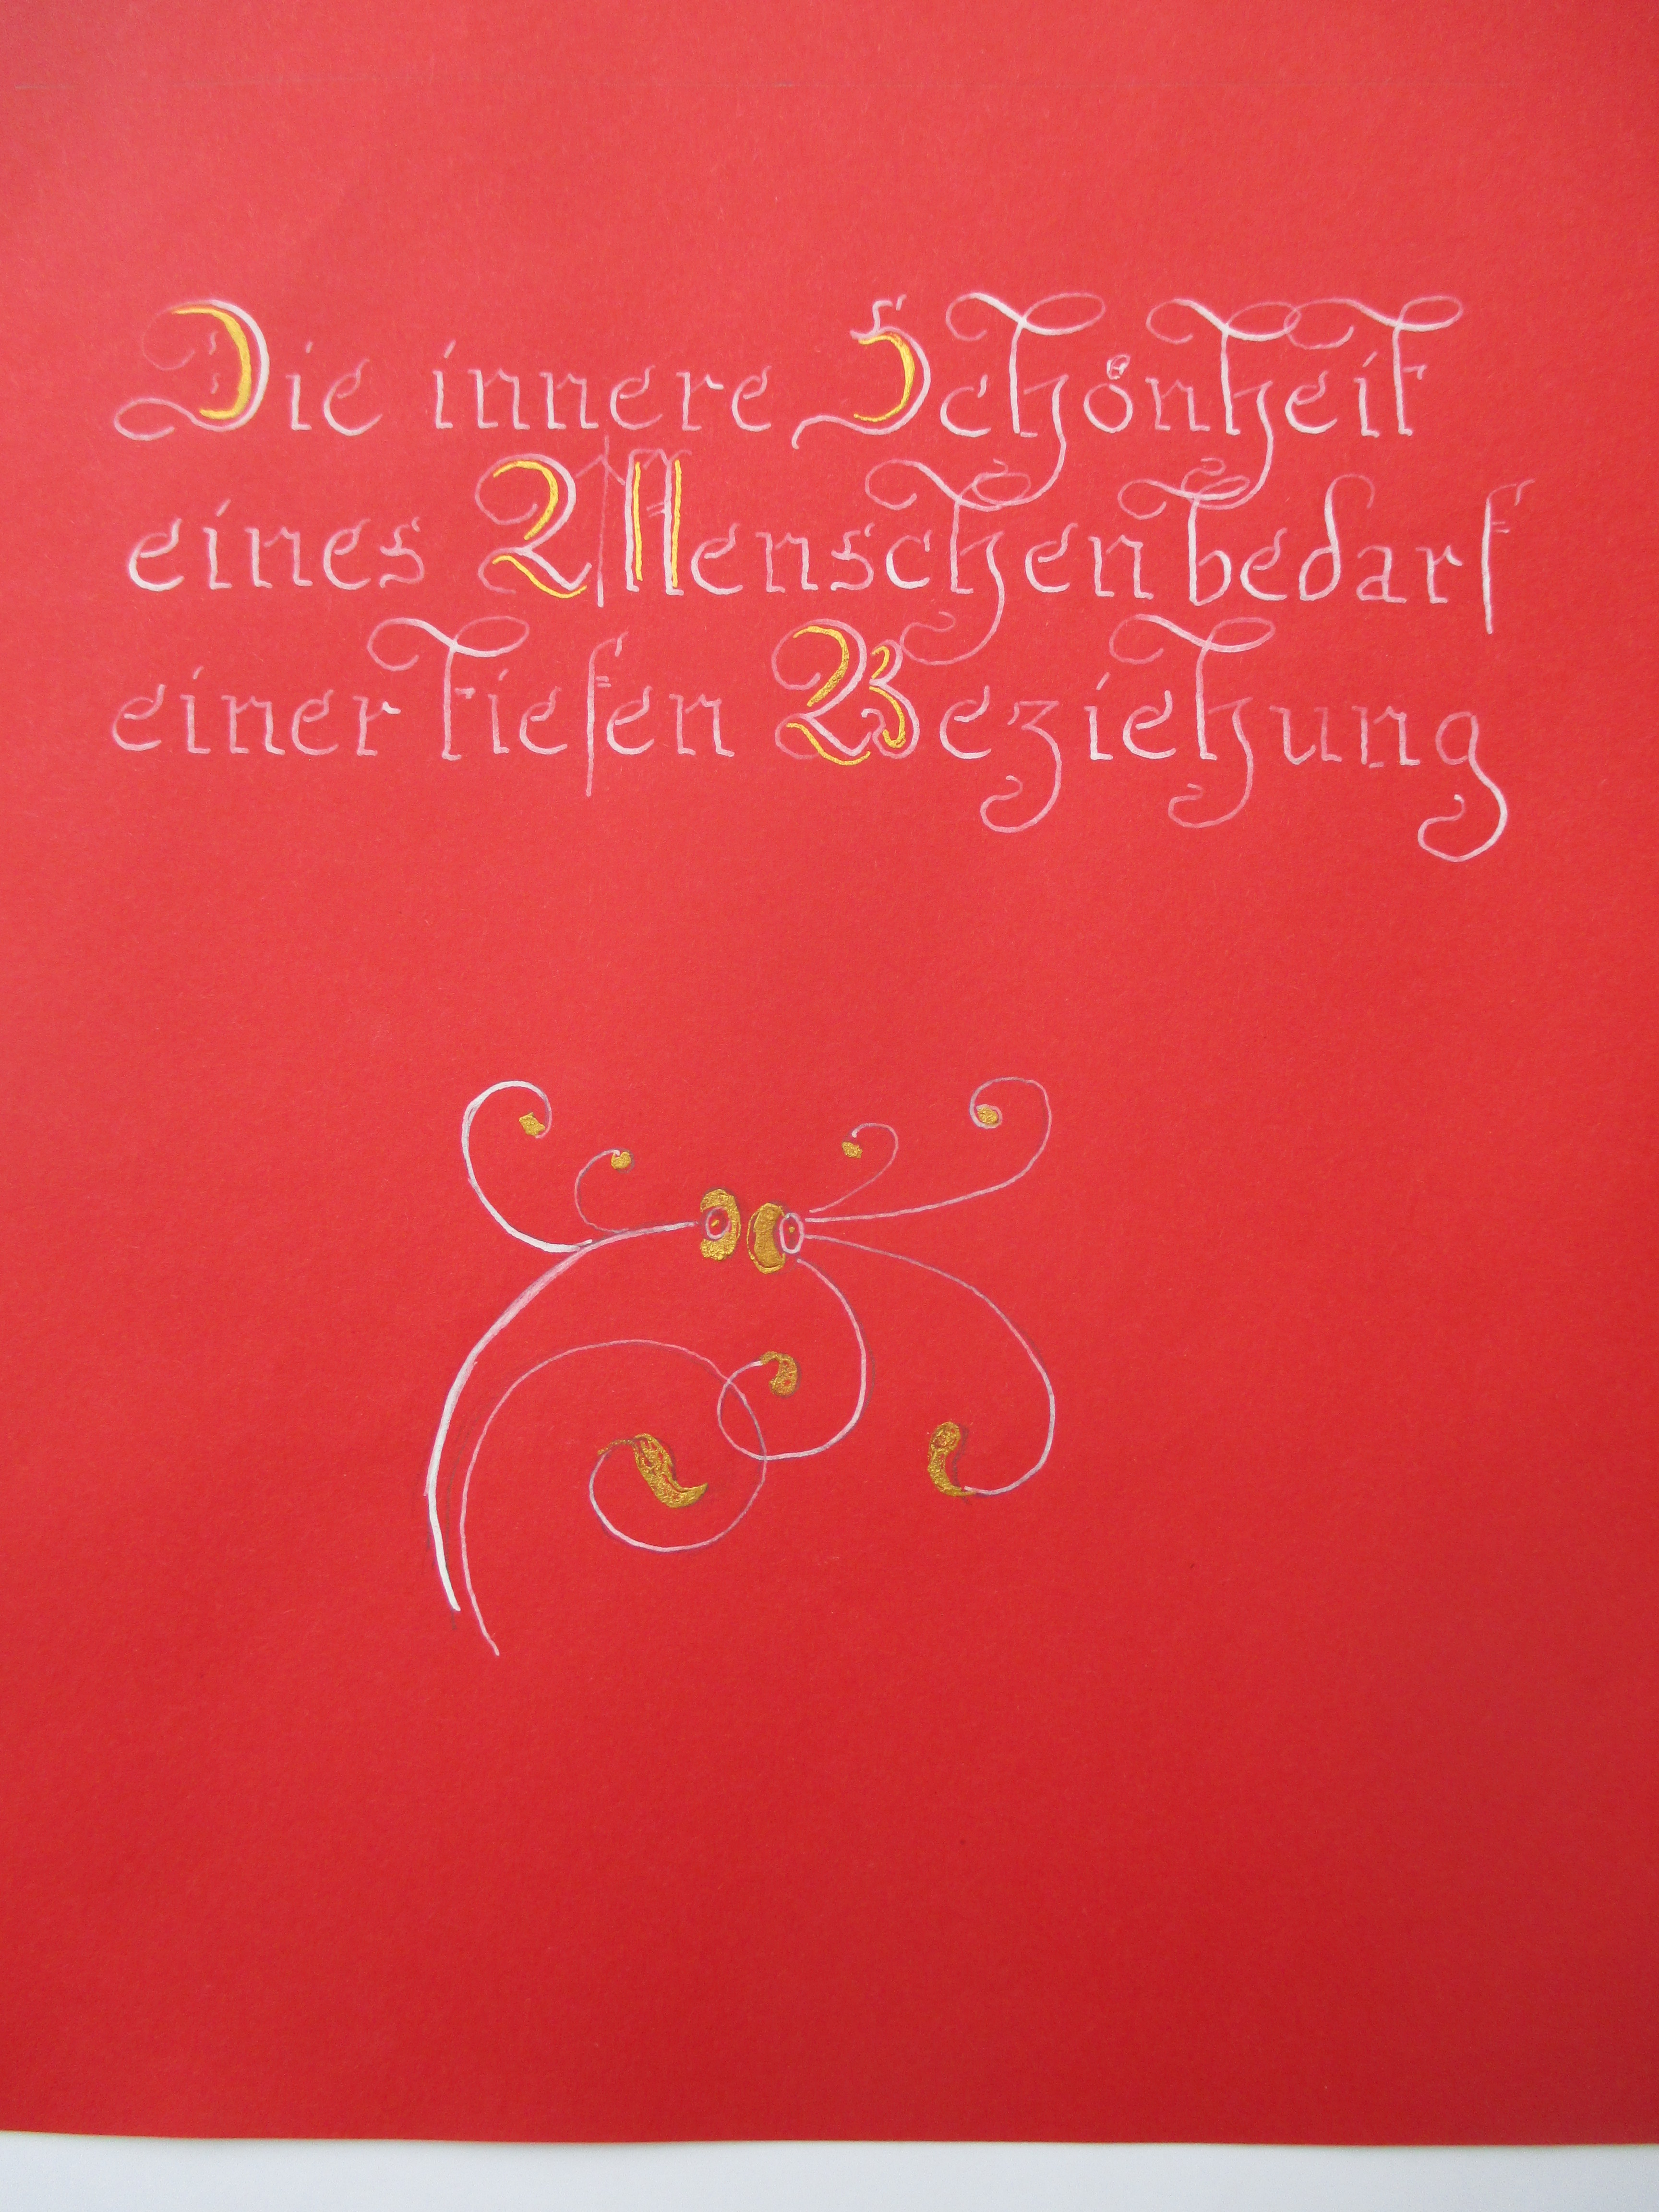 Die innere Schönheit
eines Menschen bedarf
einer tiefen Beziehung